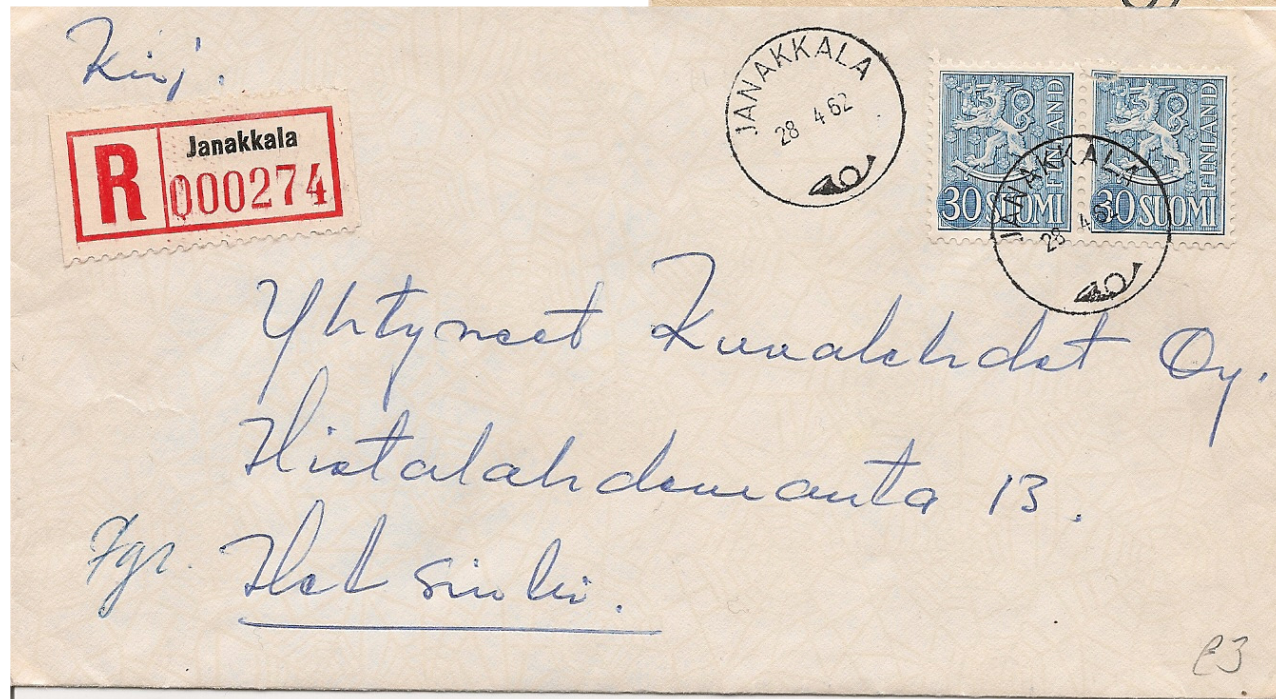 Kirj.
R Janakkala
000274
JANAKKALA
28 4 62
30 SUOMI FINLAND
30 SUOMI FINLAND
JANAKKALA
28 4 62
Yhtyneet Kuvalehdet Oy.
Hietalahdenranta 13.
Helsinki.